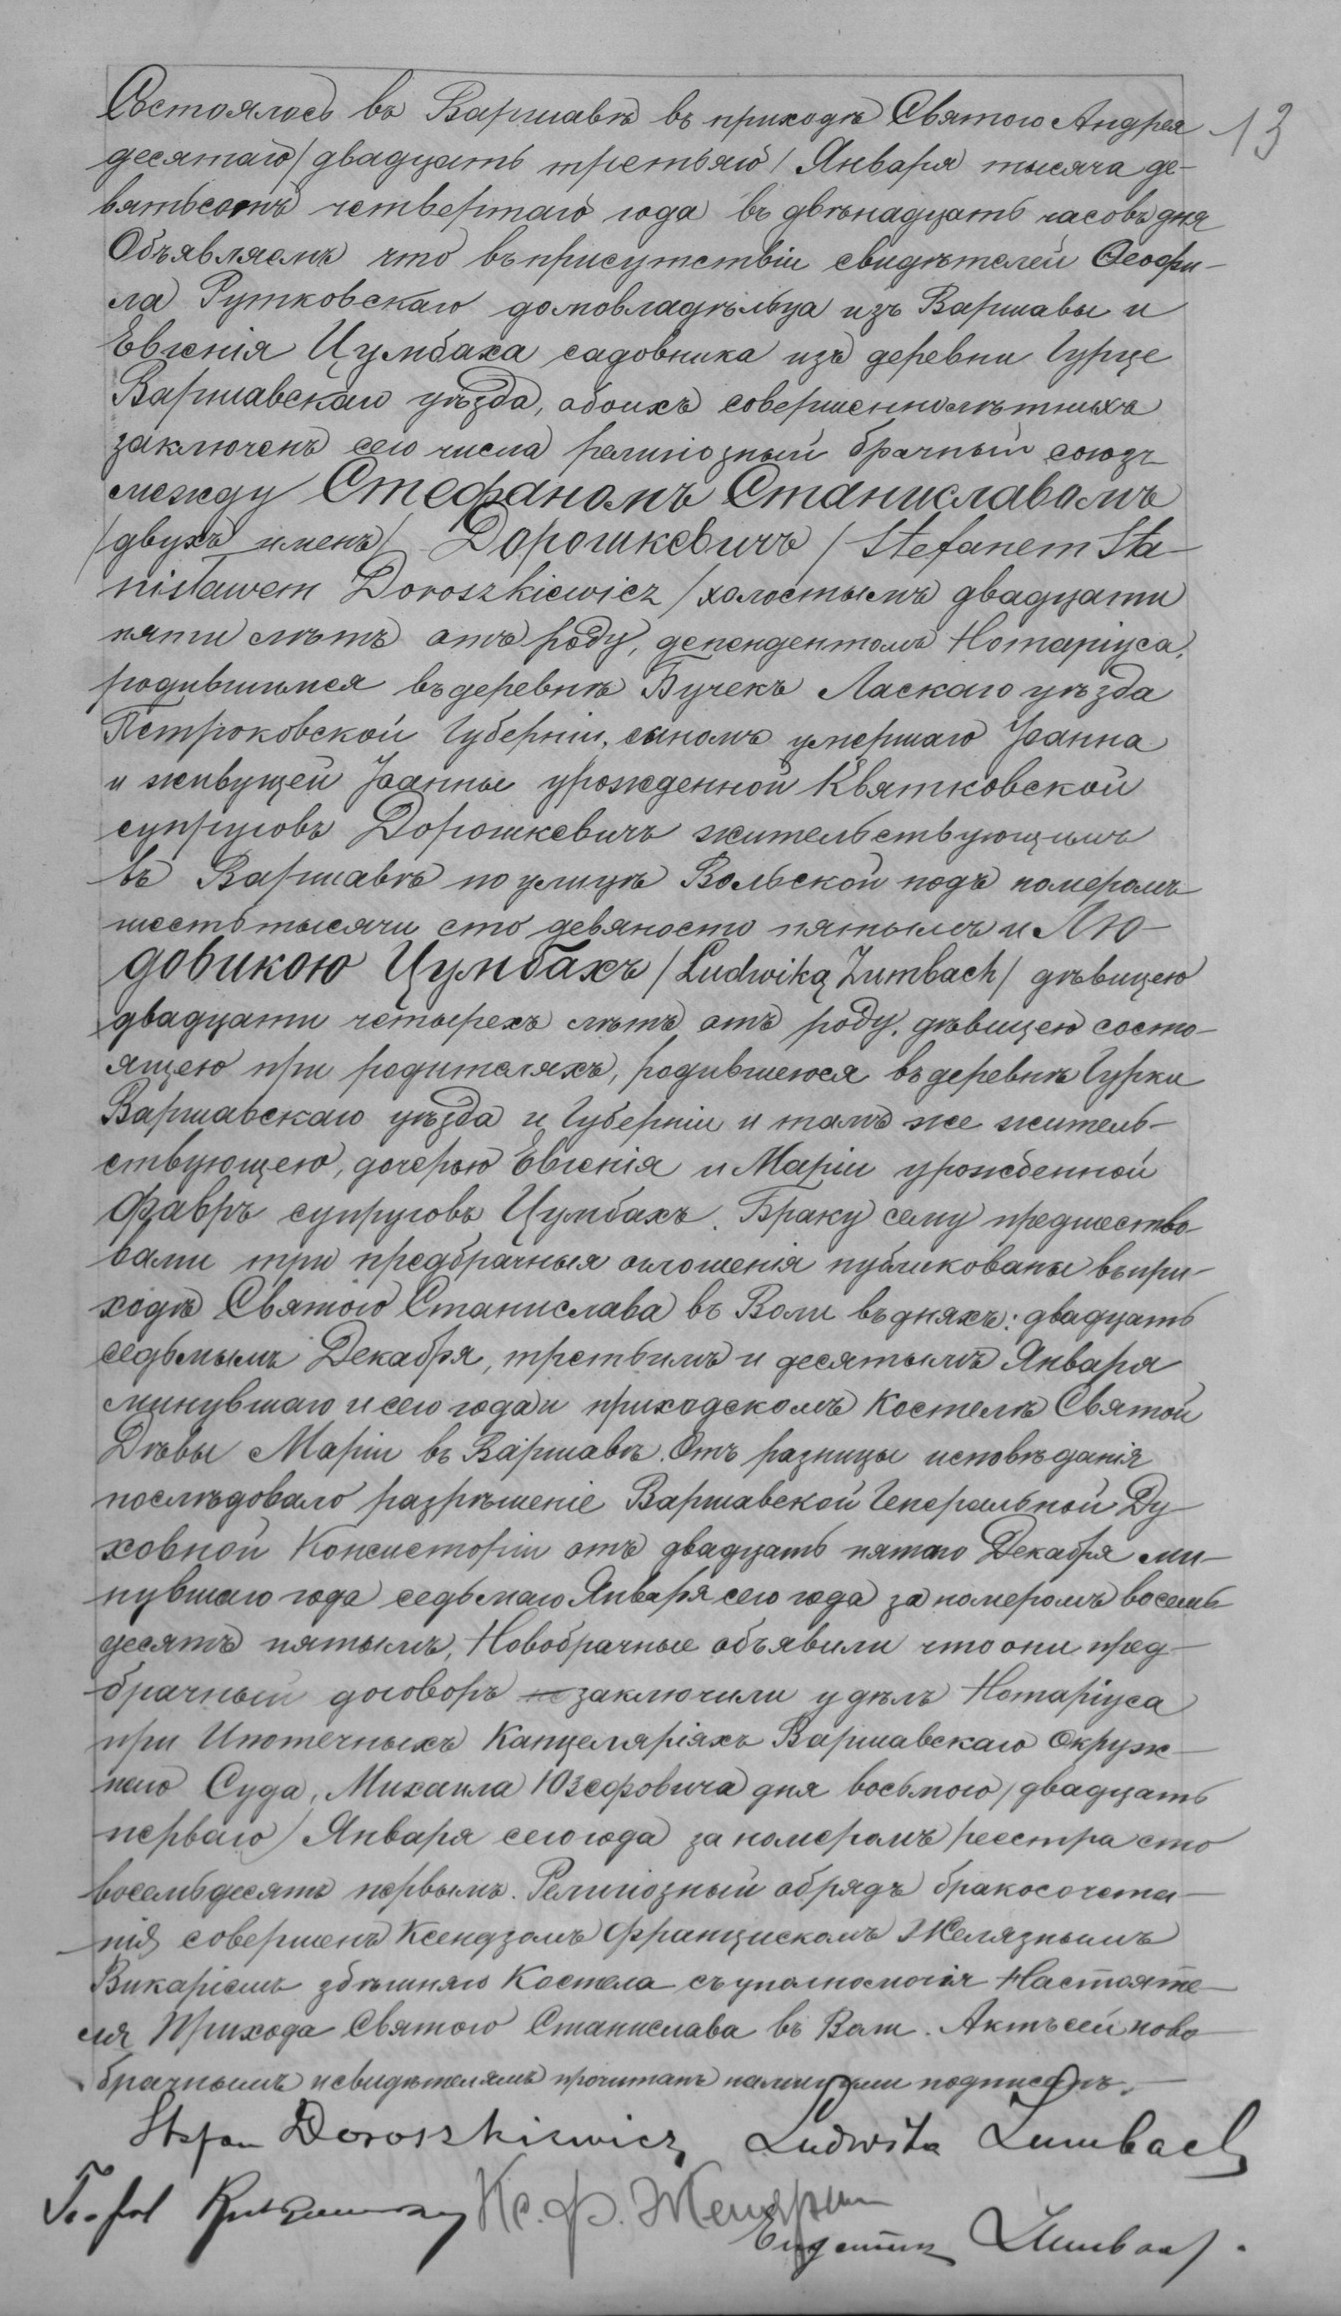 13
Состоялось въ Варшавѣ въ приходѣ Святого Андрея
десятаго / двадцать третьяго / Января тысяча де-
вятьсотъ четвертаго года въ двѣнадцать часовъ дня
Объявляемъ что въ присутствіи свидѣтелей Ѳеофи-
ла Рутковскаго домовладѣльца изъ Варшавы и
Евгенія Цумбаха садовника изъ деревни Гурце
Варшавскаго уѣзда, обоихъ совершеннолѣтныхъ
заключенъ сего числа религіозный брачный союзъ
между Стефаномъ Станиславомъ
/двухъ именъ/ Дорошкевичъ / Stefanem Sta-
nisławem Doroszkiewicz / холостымъ двадцати
пяти лѣтъ отъ роду, депендентомъ Нотаріуса,
родившимся въ деревнѣ Бучекъ Ласкаго уѣзда
Петроковской Губерніи, сыномъ умершаго Іоанна
и живущей Іоанны урожденной Квятковской
супруговъ Дорошкевичъ жительствующимъ
въ Варшавѣ по улицѣ Вольской подъ номеромъ
шесть тысячи сто девяносто пятымъ и Лю-
довикою Цумбахъ / Ludwiką Zumbach / дѣвицею
двадцати четырехъ лѣтъ отъ роду, дѣвицею состо-
ящею при родителяхъ, родившеюся въ деревнѣ Гурки
Варшавскаго уѣзда и Губерніи и тамъ же житель-
ствующею, дочерью Евгенія и Маріи урожденной
Фавръ супруговъ Цумбахъ. Браку сему предшество-
вали три предбрачныя оглошенія публикованы въ при-
ходѣ Святого Станислава въ Воли въ дняхъ: двадцать
седьмымъ Декабря, третьимъ и десятымъ Января
минувшаго и сего года и приходскомъ Костелѣ Святой
Дѣвы Маріи въ Варшавѣ. Отъ разницы исповѣданія
послѣдовало разрѣшеніе Варшавской Генеральной Ду-
ховной Консисторіи отъ двадцать пятаго Декабря ми-
нувшаго года седьмаго Января сего года за номеромъ восемь-
десятъ пятымъ, Новобрачные объявили что они пред-
брачный договоръ заключили у дѣлъ Нотаріуса
при Ипотечныхъ Канцеляріяхъ Варшавскаго Окруж-
наго Суда, Михаила Юзефовича дня восьмого / двадцать
перваго / Января сего года за номеромъ реестра сто
восемьдесятъ первымъ. Религіозный обрядъ бракосочета-
нія совершенъ Ксендзомъ Францискомъ Желязнымъ
Викаріемъ здѣшняго Костела съ уполномочія Настояте-
ля Прихода Святого Станислава въ Воли. Актъ сей ново-
брачнымъ и свидѣтелямъ прочитанъ нами и ими подписанъ.
Stefan Doroszkiewicz Ludwika Zumbach
Teofil Rutkowski Кс. Ф. Желязны
Eugeniusz Zumbach.